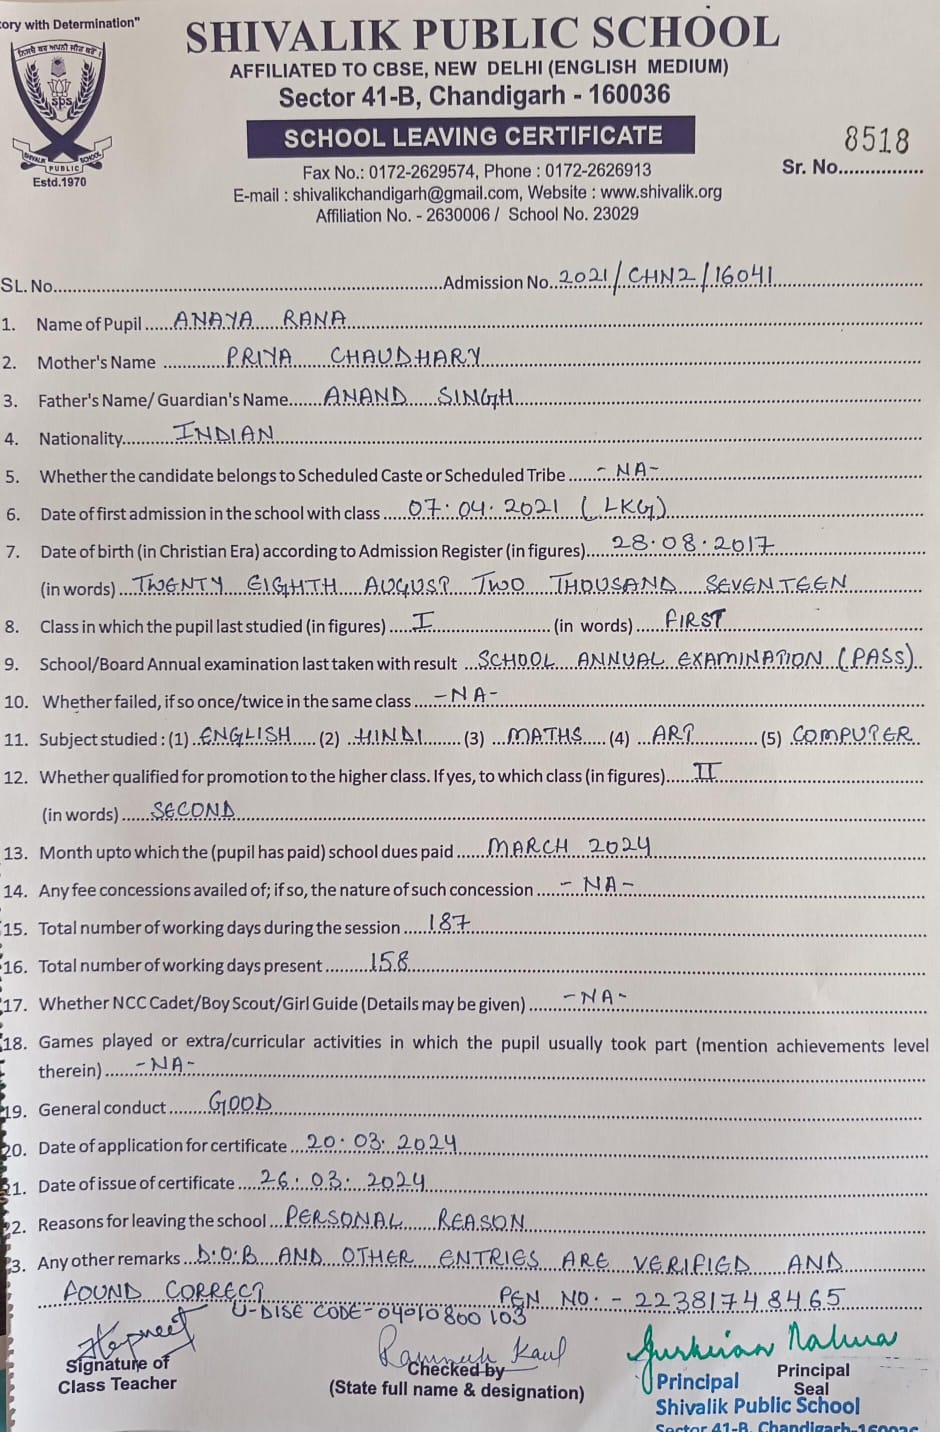 tory with Determination"
SHIVALIK PUBLIC SCHOOL
AFFILIATED TO CBSE, NEW DELHI (ENGLISH MEDIUM)
Sector 41-B, Chandigarh - 160036
SCHOOL LEAVING CERTIFICATE
SPS
SHIVALIK PUBLIC SCHOOL
Estd.1970
8518
Sr. No...............
Fax No.: 0172-2629574, Phone : 0172-2626913
E-mail : shivalikchandigarh@gmail.com, Website : www.shivalik.org
Affiliation No. - 2630006 / School No. 23029
SL. No.......... Admission No. 2021/CHN2/16041
1. Name of Pupil ANAYA RANA
2. Mother's Name PRIYA CHAUDHARY
3. Father's Name/ Guardian's Name ANAND SINGH
4. Nationality INDIAN
5. Whether the candidate belongs to Scheduled Caste or Scheduled Tribe -NA-
6. Date of first admission in the school with class 07.04.2021 (LKG)
7. Date of birth (in Christian Era) according to Admission Register (in figures) 28.08.2017
(in words) TWENTY EIGHTH AUGUST TWO THOUSAND SEVENTEEN
8. Class in which the pupil last studied (in figures) I (in words) FIRST
9. School/Board Annual examination last taken with result SCHOOL ANNUAL EXAMINATION (PASS)
10. Whether failed, if so once/twice in the same class -NA-
11. Subject studied : (1) ENGLISH (2) HINDI (3) MATHS (4) ART (5) COMPUTER
12. Whether qualified for promotion to the higher class. If yes, to which class (in figures) II
(in words) SECOND
13. Month upto which the (pupil has paid) school dues paid MARCH 2024
14. Any fee concessions availed of; if so, the nature of such concession -NA-
15. Total number of working days during the session 187
16. Total number of working days present 158
17. Whether NCC Cadet/Boy Scout/Girl Guide (Details may be given) -NA-
18. Games played or extra/curricular activities in which the pupil usually took part (mention achievements level
therein) -NA-
19. General conduct GOOD
20. Date of application for certificate 20.03.2024
21. Date of issue of certificate 26.03.2024
22. Reasons for leaving the school PERSONAL REASON
3. Any other remarks D.O.B AND OTHER ENTRIES ARE VERIFIED AND
FOUND CORRECT PEN NO. - 22381748465
U-DISE CODE-04010800103
Signature of
Class Teacher
Kaul
Checked by
(State full name & designation)
Principal
Seal
Principal
Shivalik Public School
Sector 41-B, Chandigarh-160036